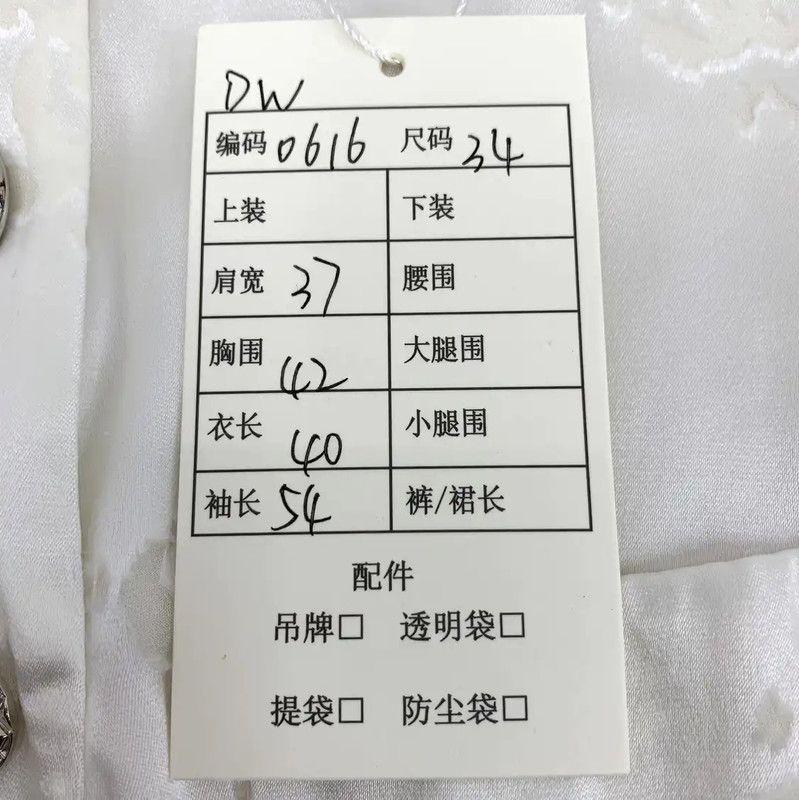 DW
编码 0616 尺码 34
上装 下装
肩宽 37 腰围
胸围 42 大腿围
衣长 40 小腿围
袖长 54 裤/裙长
配件
吊牌□ 透明袋□
提袋□ 防尘袋□